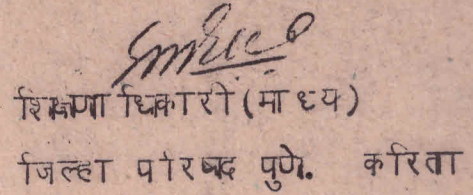 शिक्षणाधिकारी (माध्य)
जिल्हा परिषद पुणे. करिता